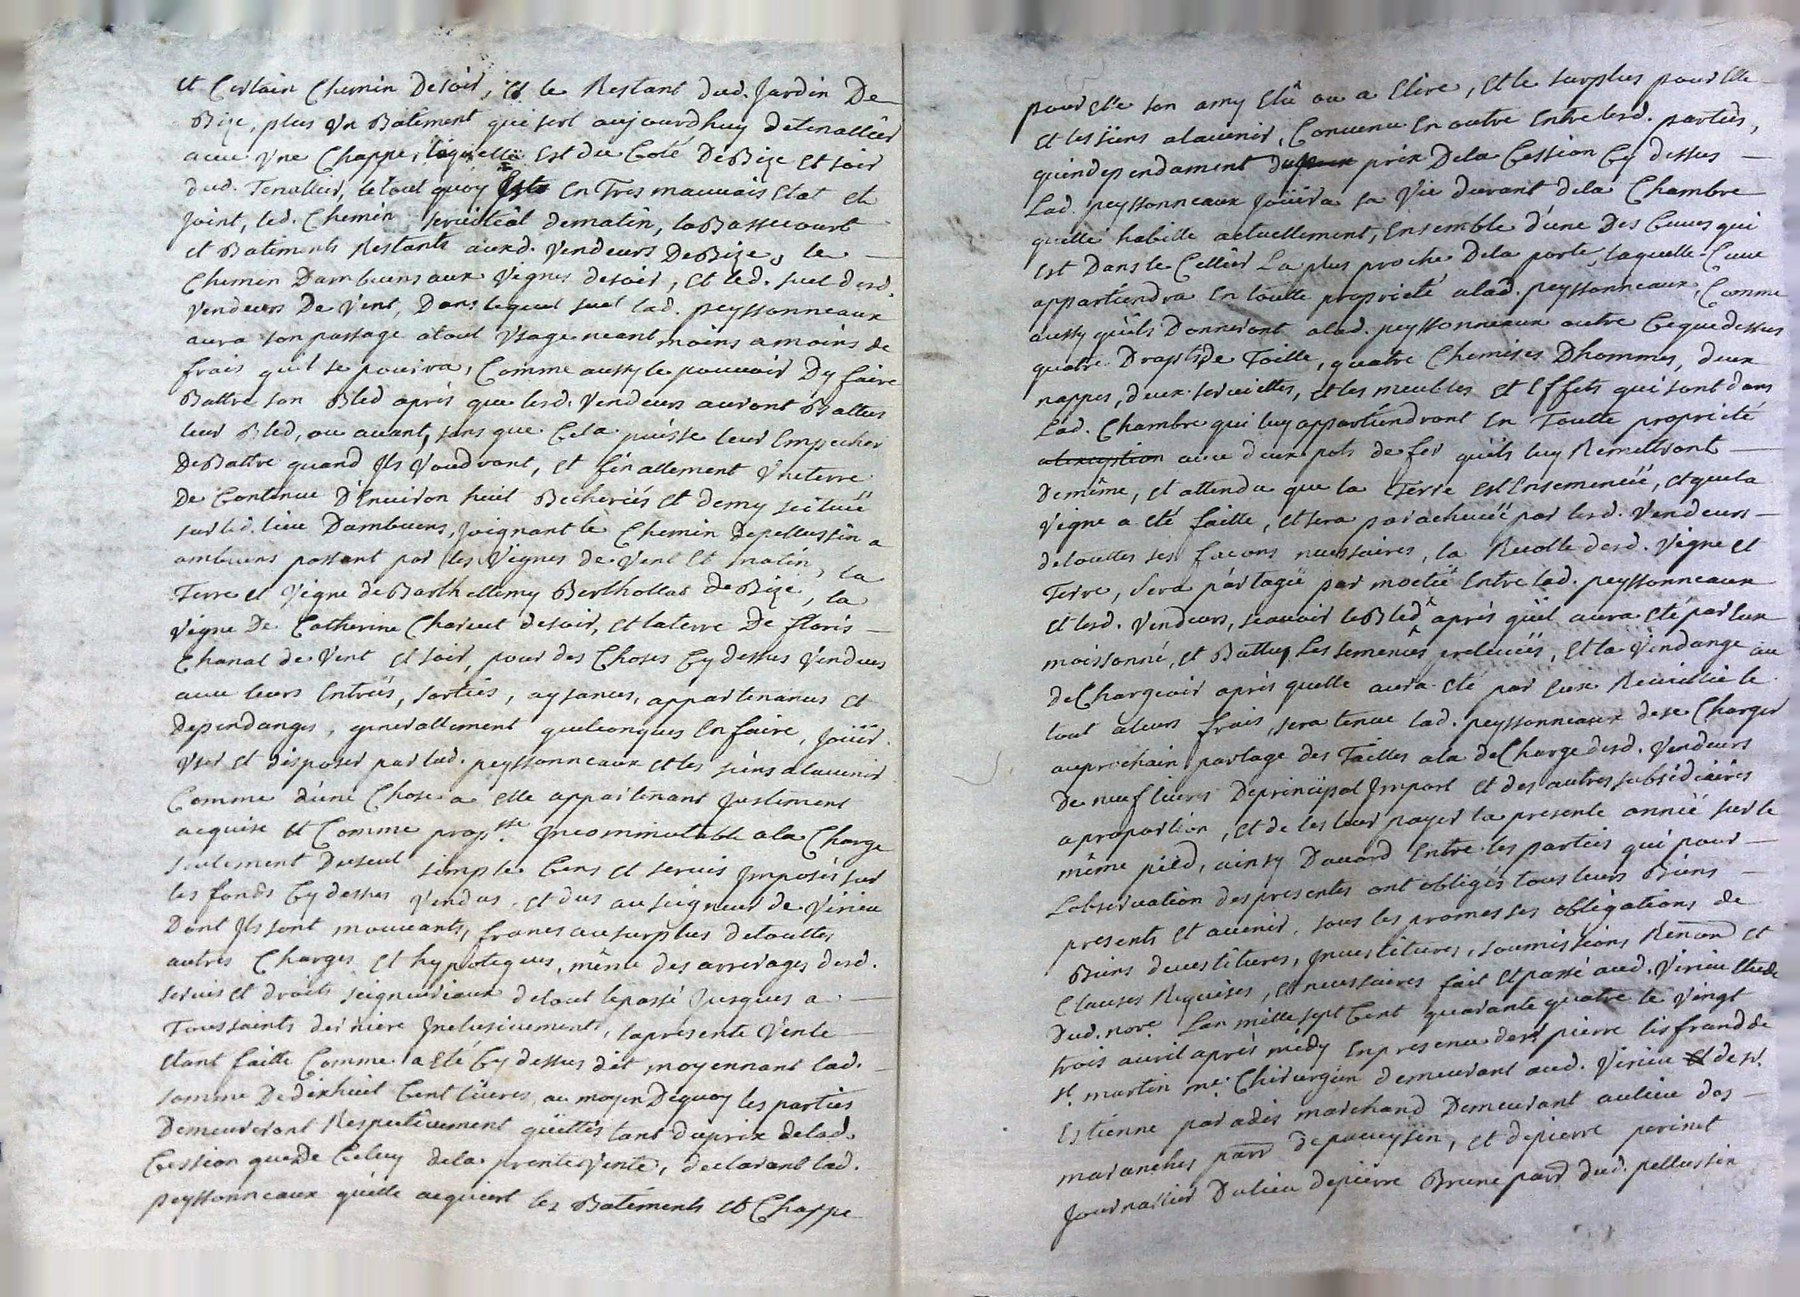 et Certain Chemin de soir, et le Restant dud. Jardin De
Bize, plus un Batiment qui sert aujourdhuy de tenallier
avec une Chappe, laquelle est du Coté De Bize et soir
dud. Tenallier, le tout quoy En Tres mauvais Etat et
joint, led. Chemin de matin, la Bassecourt
et Batiments Restants auxd. vendeurs De Bize, le
Chemin Dambuens aux vegnes de soir, et led. suel desd.
vendeurs De vent, Dans lequel suel lad. peyssonneaux
aura son passage a tout usage neant moins a moins de
frais quil se pourra, Comme aussy le pouvoir Dy faire
Battre son Bled après que lesd. vendeurs auront Battus
leur Bled, ou avant, sans que Cela puisse leur Empecher
De Battre quand Ils voudront, et finallement une terre
De Contenue D'Environ huit Becheriés et demy scituéé
sur led. lieu Dambuens, joignant le Chemin de pellussin a
ambuens passant par les vignes de vent et matin, la
Terre et vigne de Barthellemy Berthollat de Bize, la
vigne De Catherine de soir, et la terre De floris
Chanal de vent et soir, pour des Choses Cy dessus vendues
avec leurs Entréés, sortiés, aysances, appartenances et
dependanges, generallement quelconques En faire, joüir
user et disposer par lad. peyssonneaux et les siens a lavenir
Comme d'une Chose a Elle appartenant Justement
acquise et Comme prop.sse Incommutable a la Charge
seulement du seul simple Cens et servis Imposés sur
les fonds Cy dessus vendus, et dus au seigneur de virieu
Dont Ils sont mouvants, francs au surplus de touttes
autres Charges et hypoteques, même des arrerages desd.
servis et droits seigneuriaux de tout le passé Jusques a
Toussaints derniere Inclusivement, la presente vente
Etant faitte Comme a Eté Cy dessus dit, moyennant lad.
somme De dixhuit Cent livres, au moyen De quoy les parties
Demeureront Respectivement quittes tant du prix de lad.
Cession que de Celuy de la pnte vente, declarant lad.
peyssonneaux qu'elle acquiert les Batiments et Chappe
pour elle son amy Elû ou a Elire, et le surplus pour Elle
et les siens a lavenir, Convenu En outre Entre lesd. partiés,
qu'independament du prix De la Cession Cy dessus
Lad. peyssonneaux Joüira sa vie durant de la Chambre
quelle habitte actuellement, Ensemble d'une des Cuves qui
Est Dans le Cellier La plus proche De la porte, laquelle Cuve
appartiendra En toutte proprieté a lad. peyssonneaux, Comme
aussy qu'ils Donneront a lad. peyssonneaux outre Ce que dessus
quatre Draps de Toille, quatre Chemises D'hommes, deux
nappes, deux serviettes, et les meubles et Effets qui sont dans
Lad. Chambre qui luy appartiendront En Toutte proprieté
a lexception avec deux pots de fer qu'ils luy Remettront
De même, et attendu que la Terre Est Ensemencéé, et que la
vigne a eté faitte, et sera parachevéé par lesd. vendeurs
de touttes ses facons necessaires, la Recolte desd. vigne et
Terre, sera partagéé par moetié Entre lad. peyssonneaux
et lesd. vendeurs, scavoir le Bled après qu'il aura eté par Eux
moissonné, et Battu, Les semences prelevéés, et la vendange au
deChargeoir après quelle aura eté par Eux Recuillie le
tout a leurs frais, sera tenue lad. peyssonneaux de se Charger
au prochain partage des Tailles a la deCharge desd. vendeurs
De neuf livres De principal Import et des autres subsidiaires
a proportion, et de les leur payer la presente annéé sur le
même pied, ainsy D'acord Entre les parties qui pour
Lobservation des presentes ont obligés tous leurs Biens
presents et avenir, sous les promesses obligations de
Biens devestitures, Investitures, soumissions Renon.on et
Clauses Requises, et necessaires fait et passé aud. virieu Etude
Dud. nore. Lan mille sept Cent quarante quatre le vingt
trois avril après midy En presence de pierre lisfrand de
st. martin me. Chirurgien demeurant aud. virieu et de sr.
Estienne paradis marchand Demeurant au lieu das
maranches parr. de paveysin, et de pierre perinet
Journallier Du lieu de pierre Brune parr. dud. pellussin